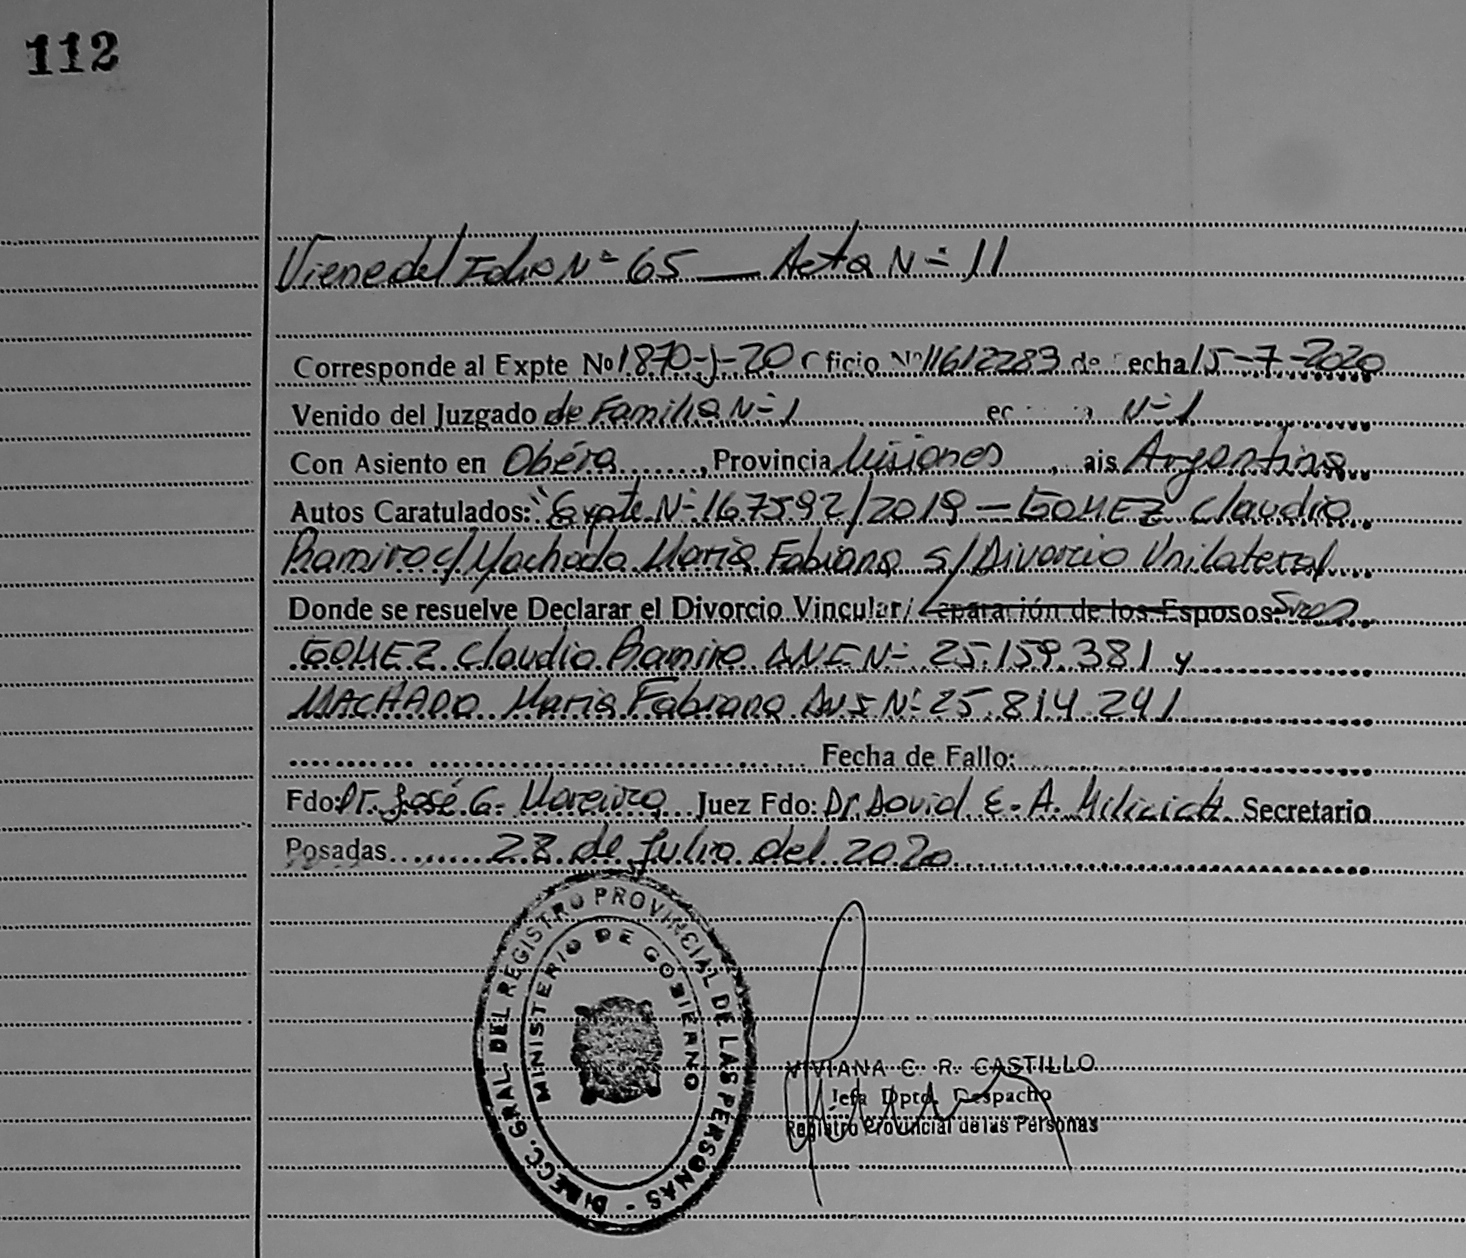 112
Viene del Folio Nº 65 — Acta Nº 11
Corresponde al Expte Nº 1870-J-20 Oficio Nº 11612283 de fecha 15-7-2020
Venido del Juzgado de Familia Nº 1 Nº 1
Con Asiento en Oberá, Provincia Misiones, ais Argentina
Autos Caratulados: "Expte Nº 167592/2019 — GOMEZ Claudio
Ramiro c/ Machado Maria Fabiana s/ Divorcio Unilateral
Donde se resuelve Declarar el Divorcio Vincular/ Separación de los Esposos Sres.
GOMEZ Claudio Ramiro DNI Nº 25.159.381 y
MACHADO Maria Fabiana DNI Nº 25.814.241
Fecha de Fallo:
Fdo: Dr. José G. Moreira Juez Fdo: Dr David E. A. Milicich Secretario
Posadas 28 de Julio del 2020
DIRECC. GRAL. DEL REGISTRO PROVINCIAL DE LAS PERSONAS -
MINISTERIO DE GOBIERNO
VIVIANA C. R. CASTILLO
Jefa Dpto. Despacho
Registro Provincial de las Personas